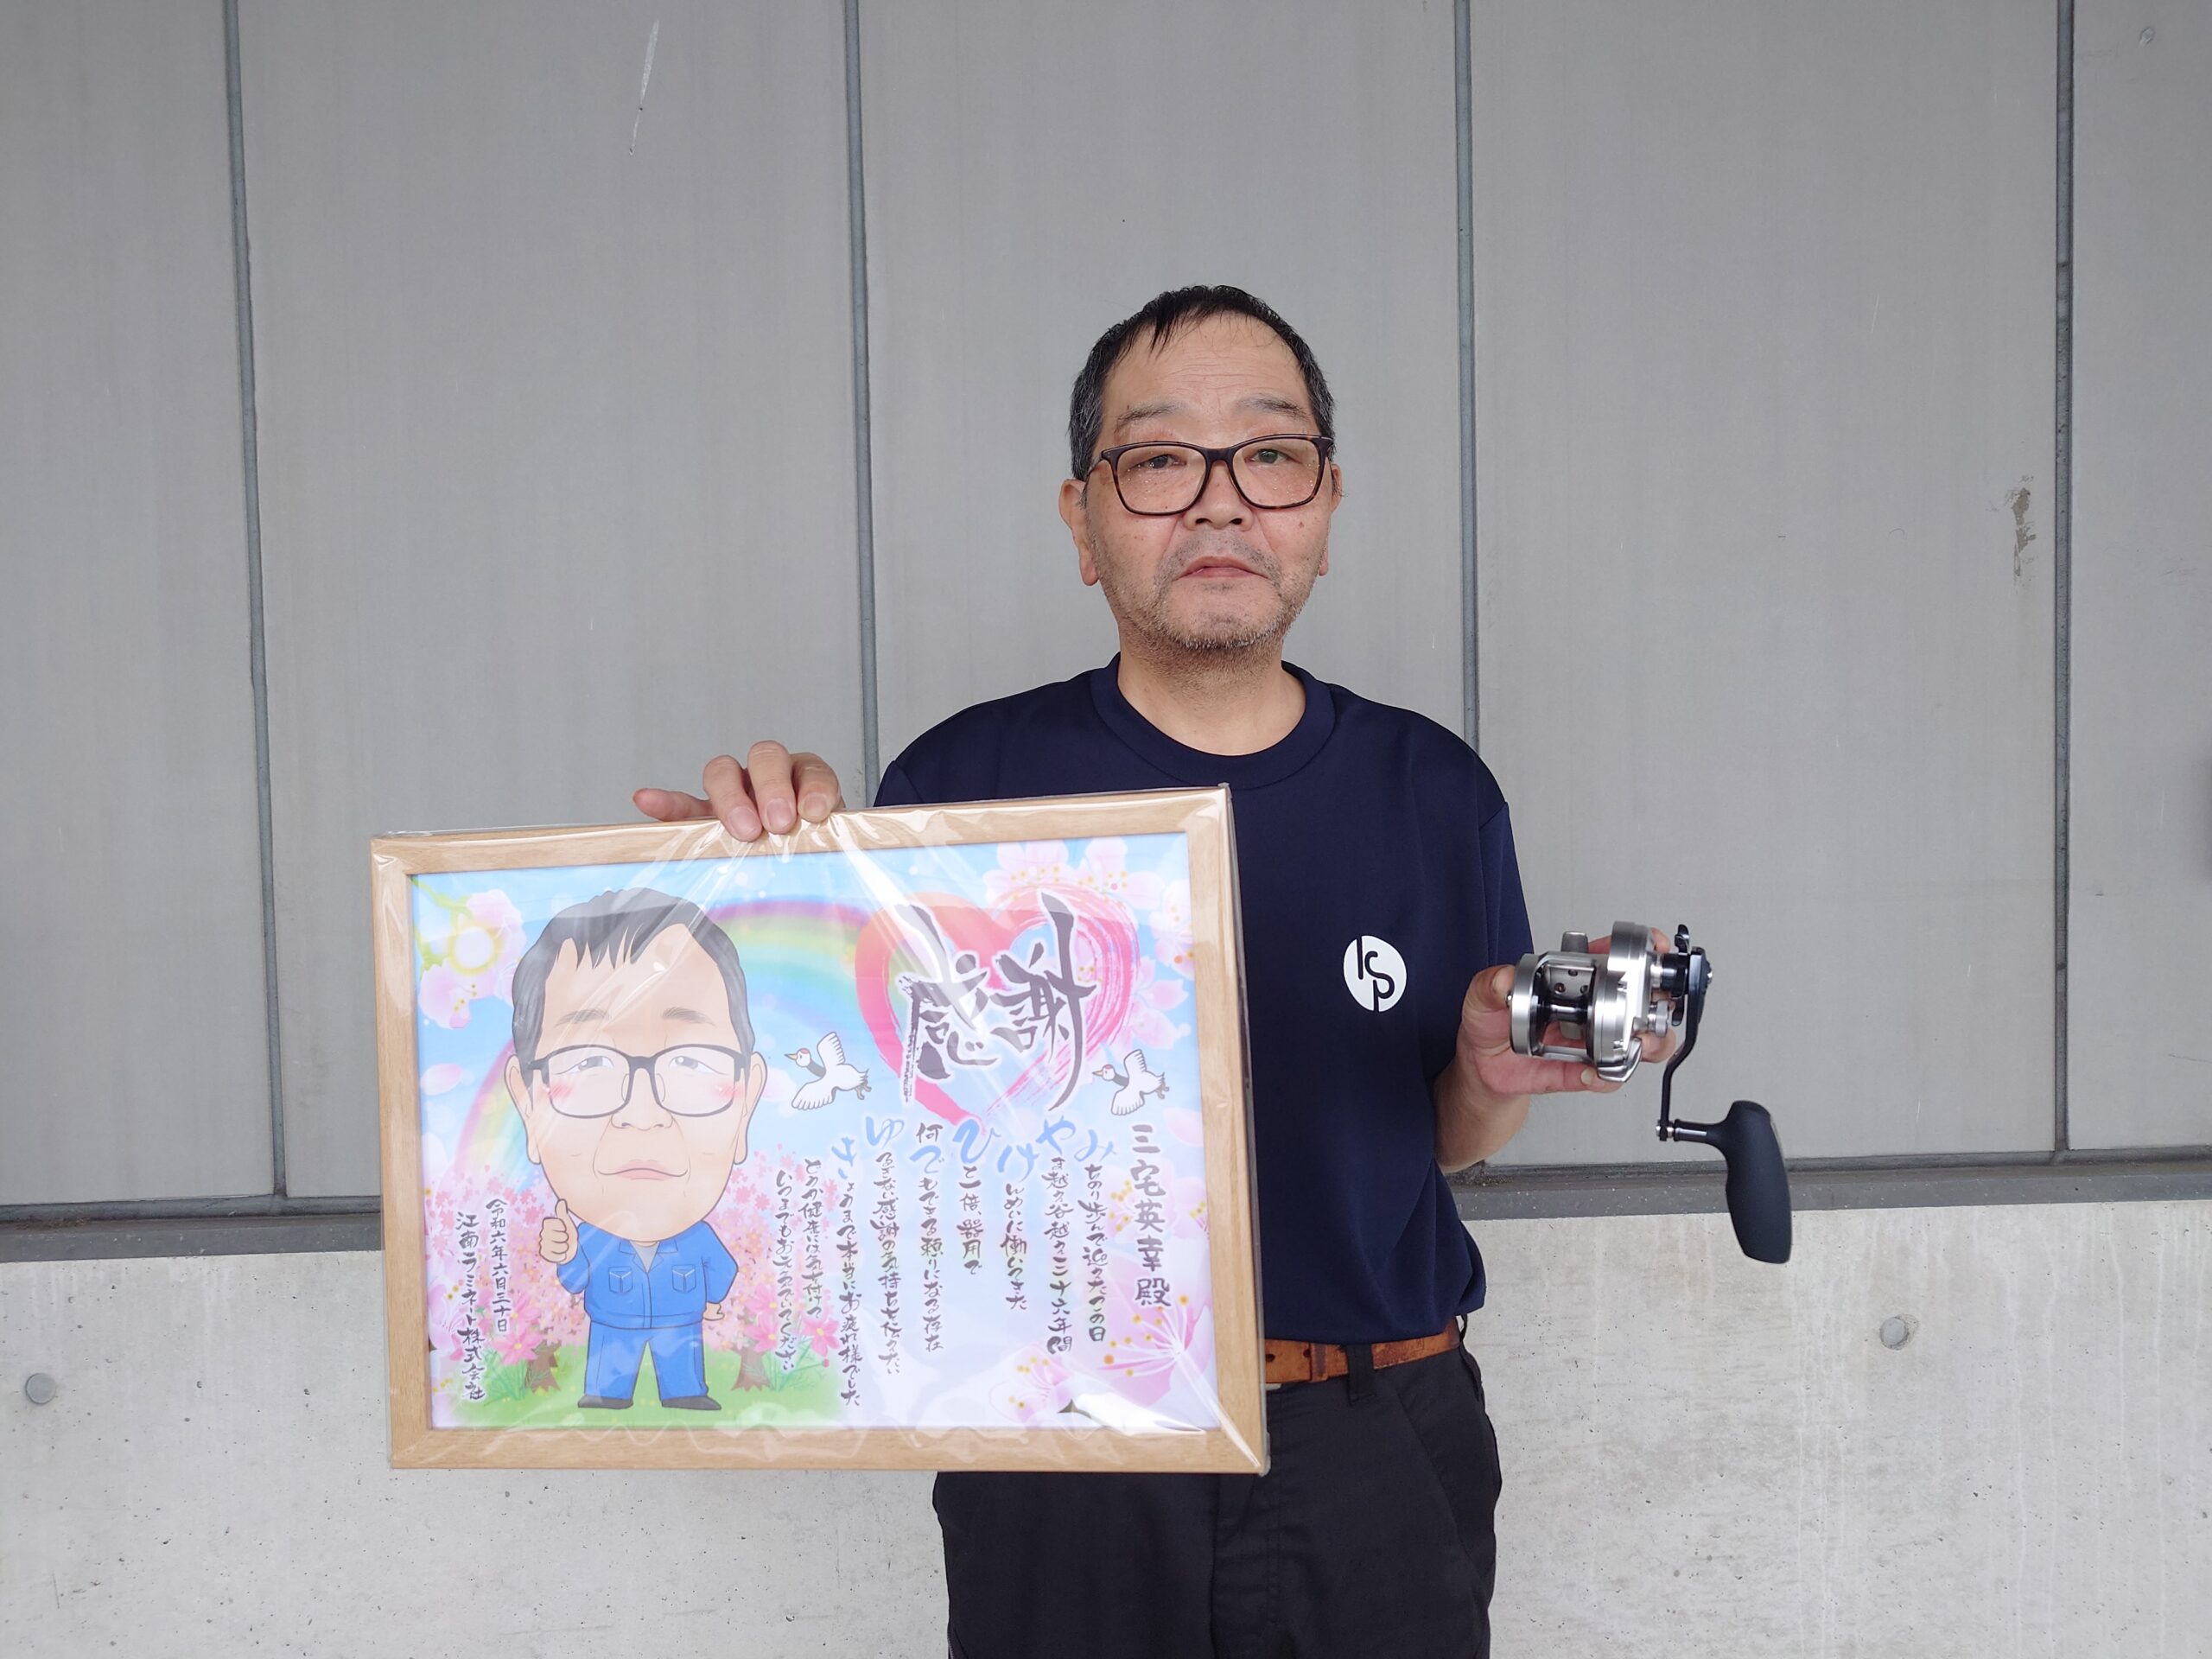 感謝
三宅英幸殿
みちのり歩んで迎えたこの日
やま越え谷越え三十六年間
けんめいに働いてきた
ひと一倍、器用で
何でもできる頼りになる存在
ゆるぎない感謝の気持ちを伝えたい
きょうまで本当にお疲れ様でした
どうか健康には気を付けて
いつまでもお元気でいてください
令和六年六月三十日
江南ラミネート株式会社
KSP